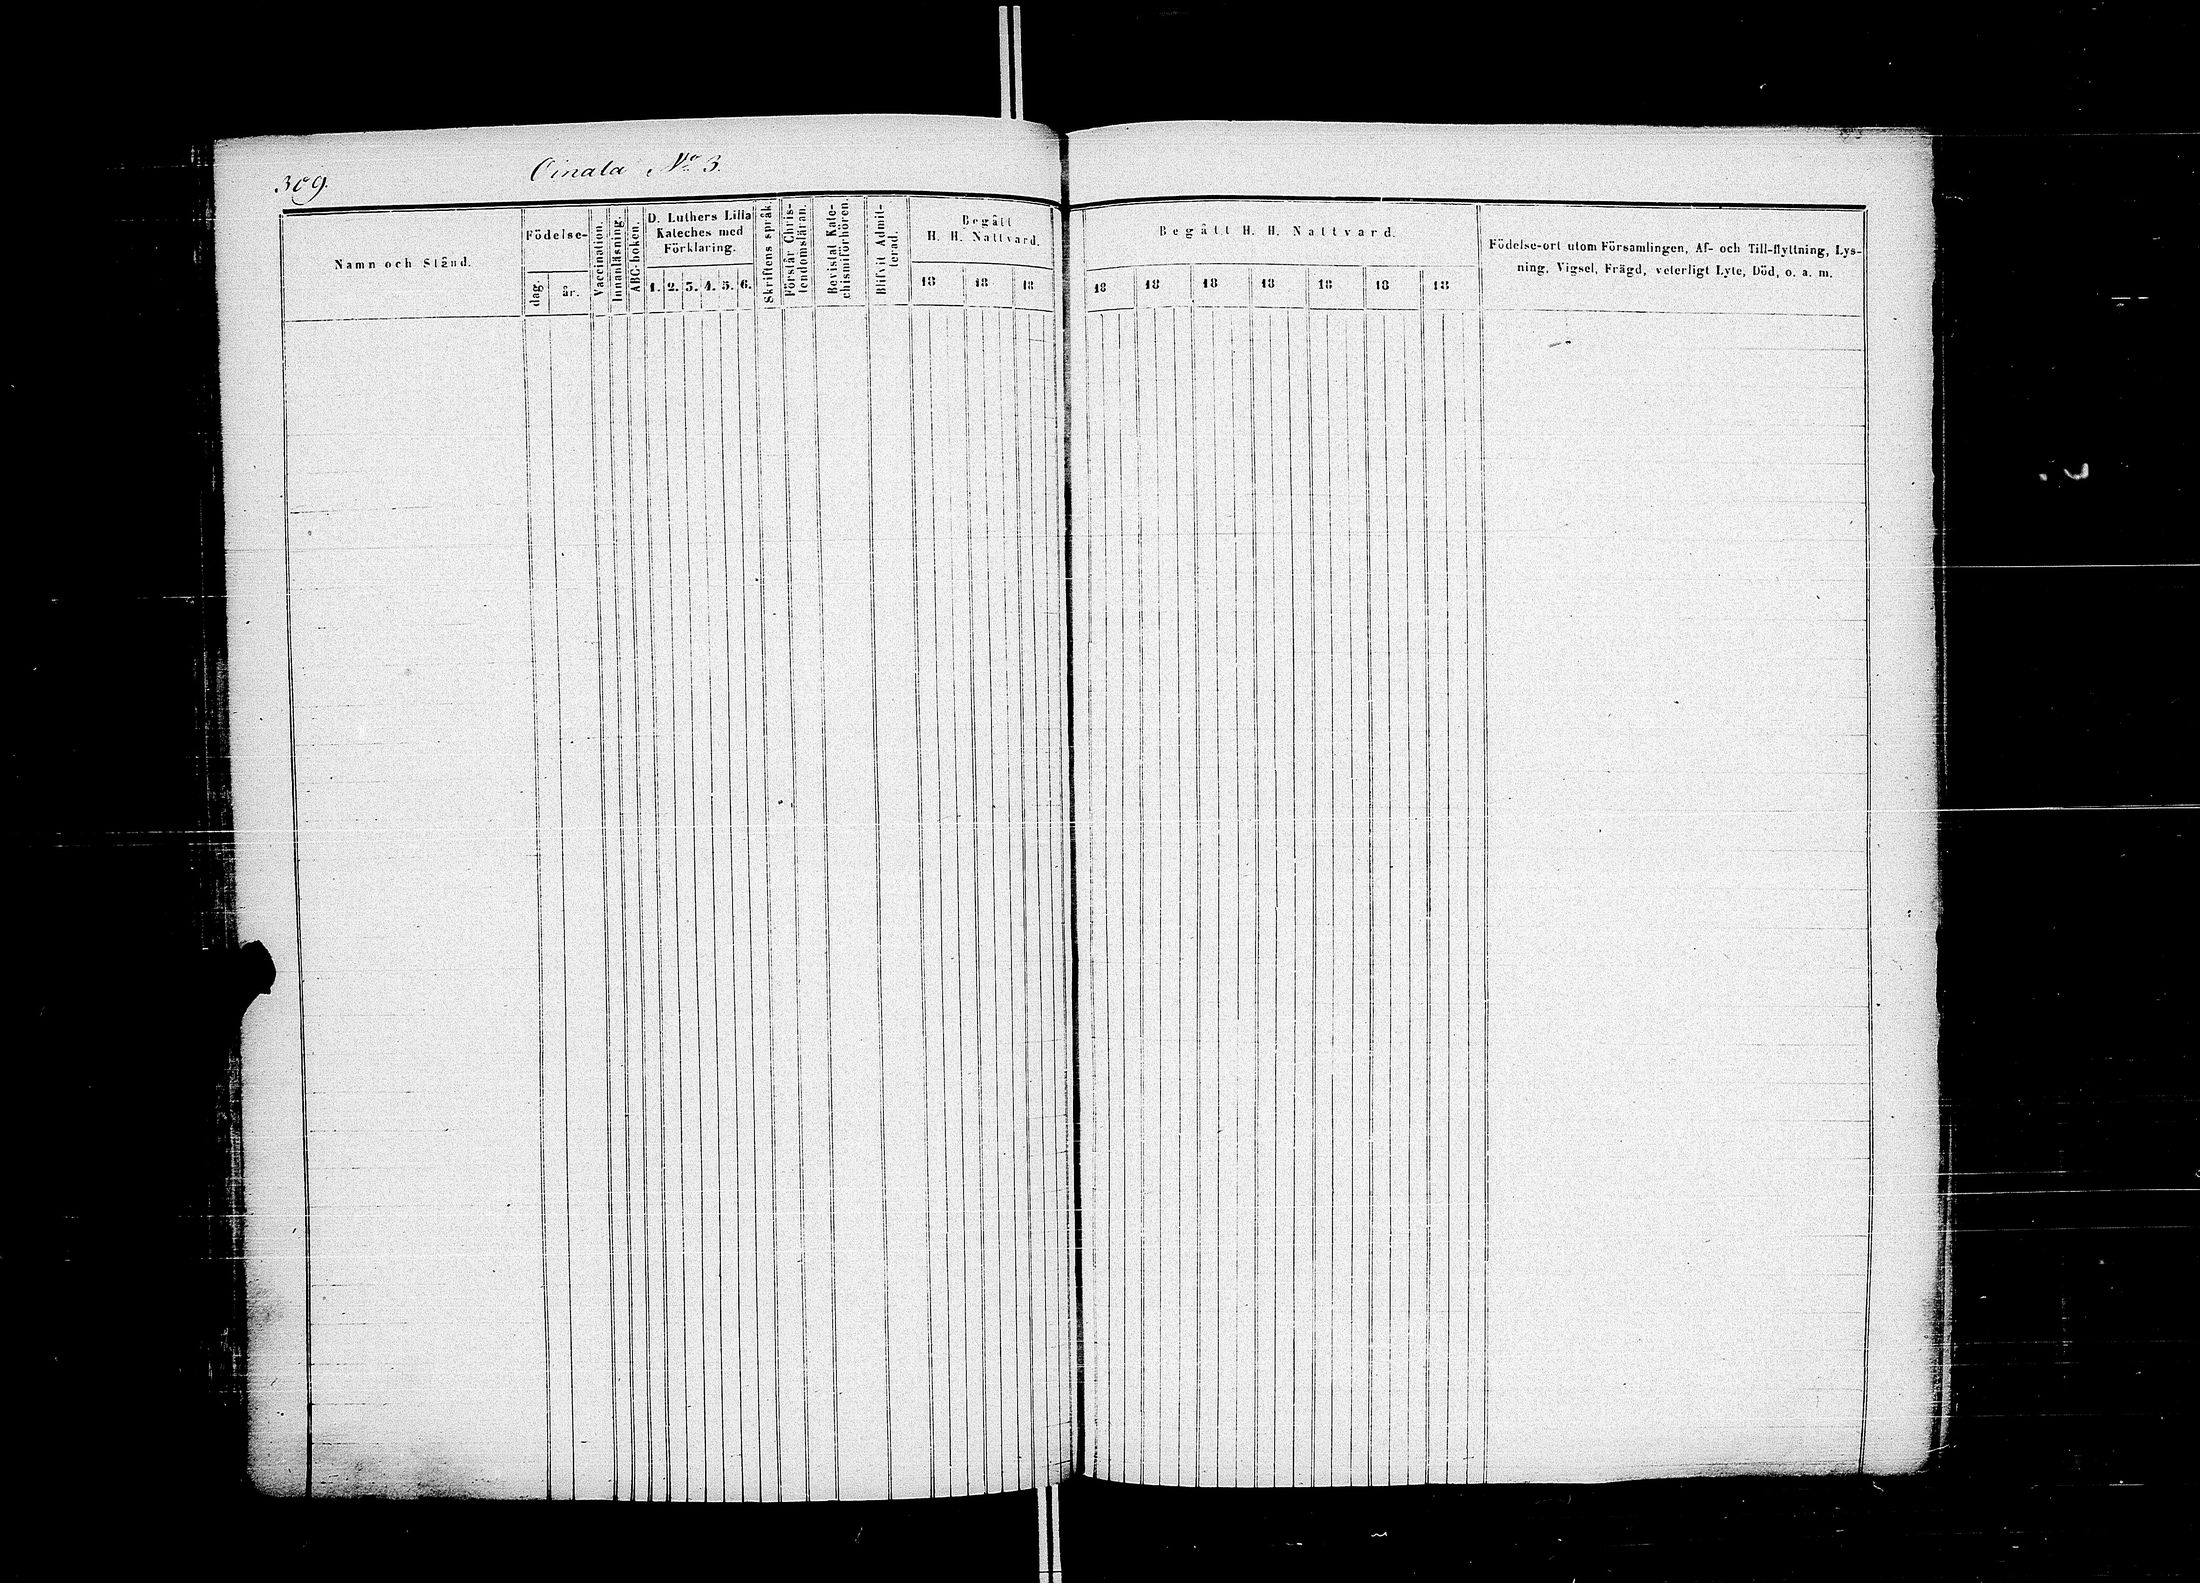 309.
Oinala No 3.
Namn och Stånd.
Födelse-
dag.
år.
Vaccination.
Innanläsning.
ABC-boken.
D. Luthers Lilla
Kateches med
Förklaring.
1. 2. 3. 4. 5. 6.
Skriftens språk.
Förstår Chris-
tendomsläran.
Bevistat Kate-
chismiförhören.
Blifvit Admit-
terad.
Begått
H. H. Nattvard.
18 18 18
Begått H. H. Nattvard.
18 18 18 18 18 18 18
Födelse-ort utom Församlingen, Af- och Till-flyttning, Lys-
ning, Vigsel, Frägd, veterligt Lyte, Död, o. a. m.